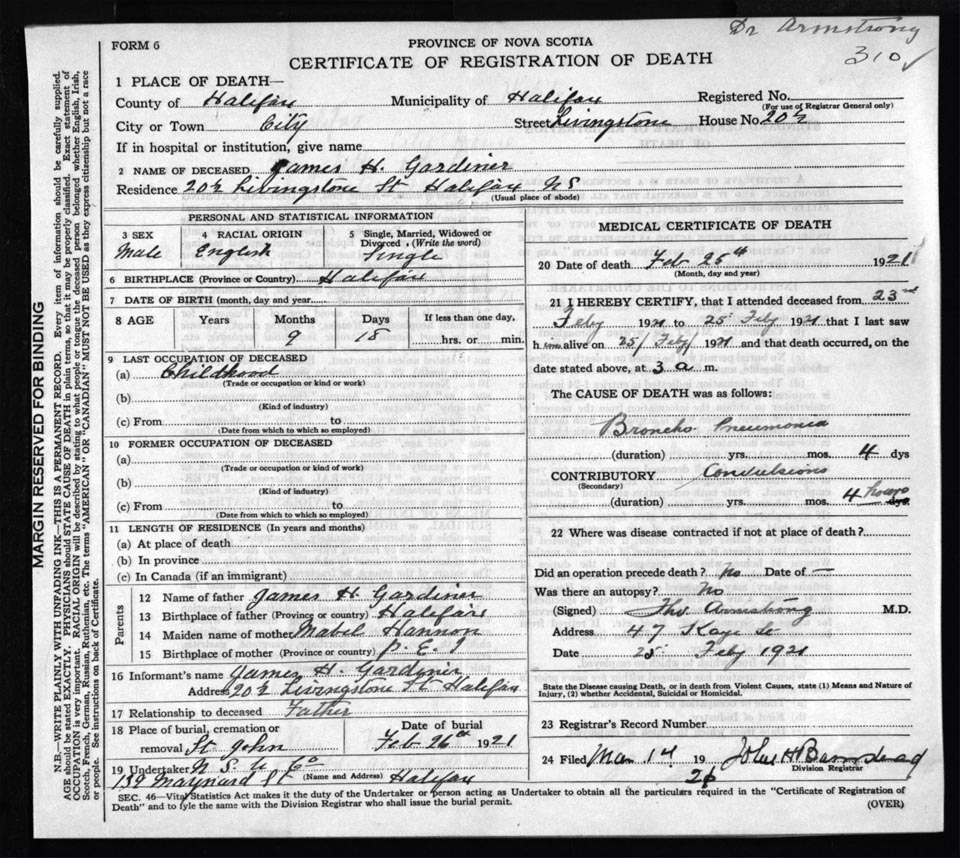 Dr Armstrong
310 ✓
FORM 6
PROVINCE OF NOVA SCOTIA
CERTIFICATE OF REGISTRATION OF DEATH
1 PLACE OF DEATH—
County of Halifax Municipality of Halifax Registered No.
(For use of Registrar General only)
City or Town City Street Livingstone House No. 20½
If in hospital or institution, give name
2 NAME OF DECEASED James H. Gardiner
Residence 20½ Livingstone St Halifax NS
(Usual place of abode)
PERSONAL AND STATISTICAL INFORMATION
3 SEX Male
4 RACIAL ORIGIN English
5 Single, Married, Widowed or Divorced. (Write the word) Single
6 BIRTHPLACE (Province or Country) Halifax
7 DATE OF BIRTH (month, day and year)
8 AGE Years Months 9 Days 18 If less than one day, hrs. or min.
9 LAST OCCUPATION OF DECEASED
(a) Childhood
(Trade or occupation or kind of work)
(b)
(Kind of industry)
(c) From to
(Date from which to which so employed)
10 FORMER OCCUPATION OF DECEASED
(a)
(Trade or occupation or kind of work)
(b)
(Kind of industry)
(c) From to
(Date from which to which so employed)
11 LENGTH OF RESIDENCE (In years and months)
(a) At place of death
(b) In province
(c) In Canada (if an immigrant)
Parents
12 Name of father James H. Gardiner
13 Birthplace of father (Province or country) Halifax
14 Maiden name of mother Mabel Hannon
15 Birthplace of mother (Province or country) P.E.I
16 Informant's name James H. Gardiner
Address 20½ Livingstone St Halifax
17 Relationship to deceased Father
18 Place of burial, cremation or removal St John Date of burial Feb 26th 1921
19 Undertaker N S U Co
(Name and Address)
159 Maynard St Halifax
MEDICAL CERTIFICATE OF DEATH
20 Date of death Feb 25th 1921
(Month, day and year)
21 I HEREBY CERTIFY, that I attended deceased from 23rd
Feby 1921 to 25 Feby 1921 that I last saw
h im alive on 25/ Feby/ 1921 and that death occurred, on the
date stated above, at 3 a m.
The CAUSE OF DEATH was as follows:
Broncho Pneumonia
(duration) yrs. mos. 4 dys
CONTRIBUTORY Convulsions
(Secondary)
(duration) yrs. mos. 4 hours dys.
22 Where was disease contracted if not at place of death?
Did an operation precede death? No Date of —
Was there an autopsy? No
(Signed) Thos Armstrong M.D.
Address 47 Kaye St
Date 25 Feby 1921
State the Disease causing Death, or in death from Violent Causes, state (1) Means and Nature of
Injury, (2) whether Accidental, Suicidal or Homicidal.
23 Registrar's Record Number
24 Filed Mar 14 19 26
Division Registrar
SEC. 46—Vital Statistics Act makes it the duty of the Undertaker or person acting as Undertaker to obtain all the particulars required in the "Certificate of Registration of
Death" and to fyle the same with the Division Registrar who shall issue the burial permit.
(OVER)
MARGIN RESERVED FOR BINDING
N.B.—WRITE PLAINLY WITH UNFADING INK—THIS IS A PERMANENT RECORD. Every item of information should be carefully supplied.
AGE should be stated EXACTLY. PHYSICIANS should STATE CAUSE OF DEATH in plain terms, so that it may be properly classified. Exact statement of
OCCUPATION is very important. RACIAL ORIGIN will be described by stating to what people or tongue the deceased person belonged whether English, Irish,
Scotch, French, German, Russian, Ruthenian, etc. The terms "AMERICAN" OR "CANADIAN" MUST NOT BE USED as they express citizenship but not a race
or people. See instructions on back of Certificate.